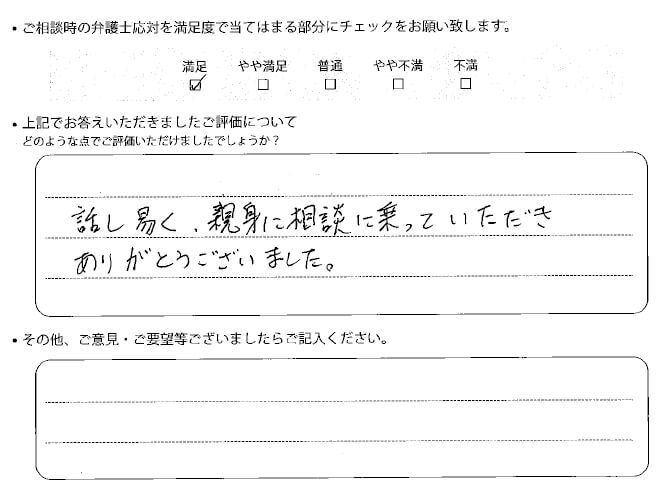 ・ご相談時の弁護士応対を満足度で当てはまる部分にチェックをお願い致します。
満足 やや満足 普通 やや不満 不満
☑ □ □ □ □
・上記でお答えいただきましたご評価について
どのような点でご評価いただけましたでしょうか？
話し易く、親身に相談に乗っていただき
ありがとうございました。
・その他、ご意見・ご要望等ございましたらご記入ください。